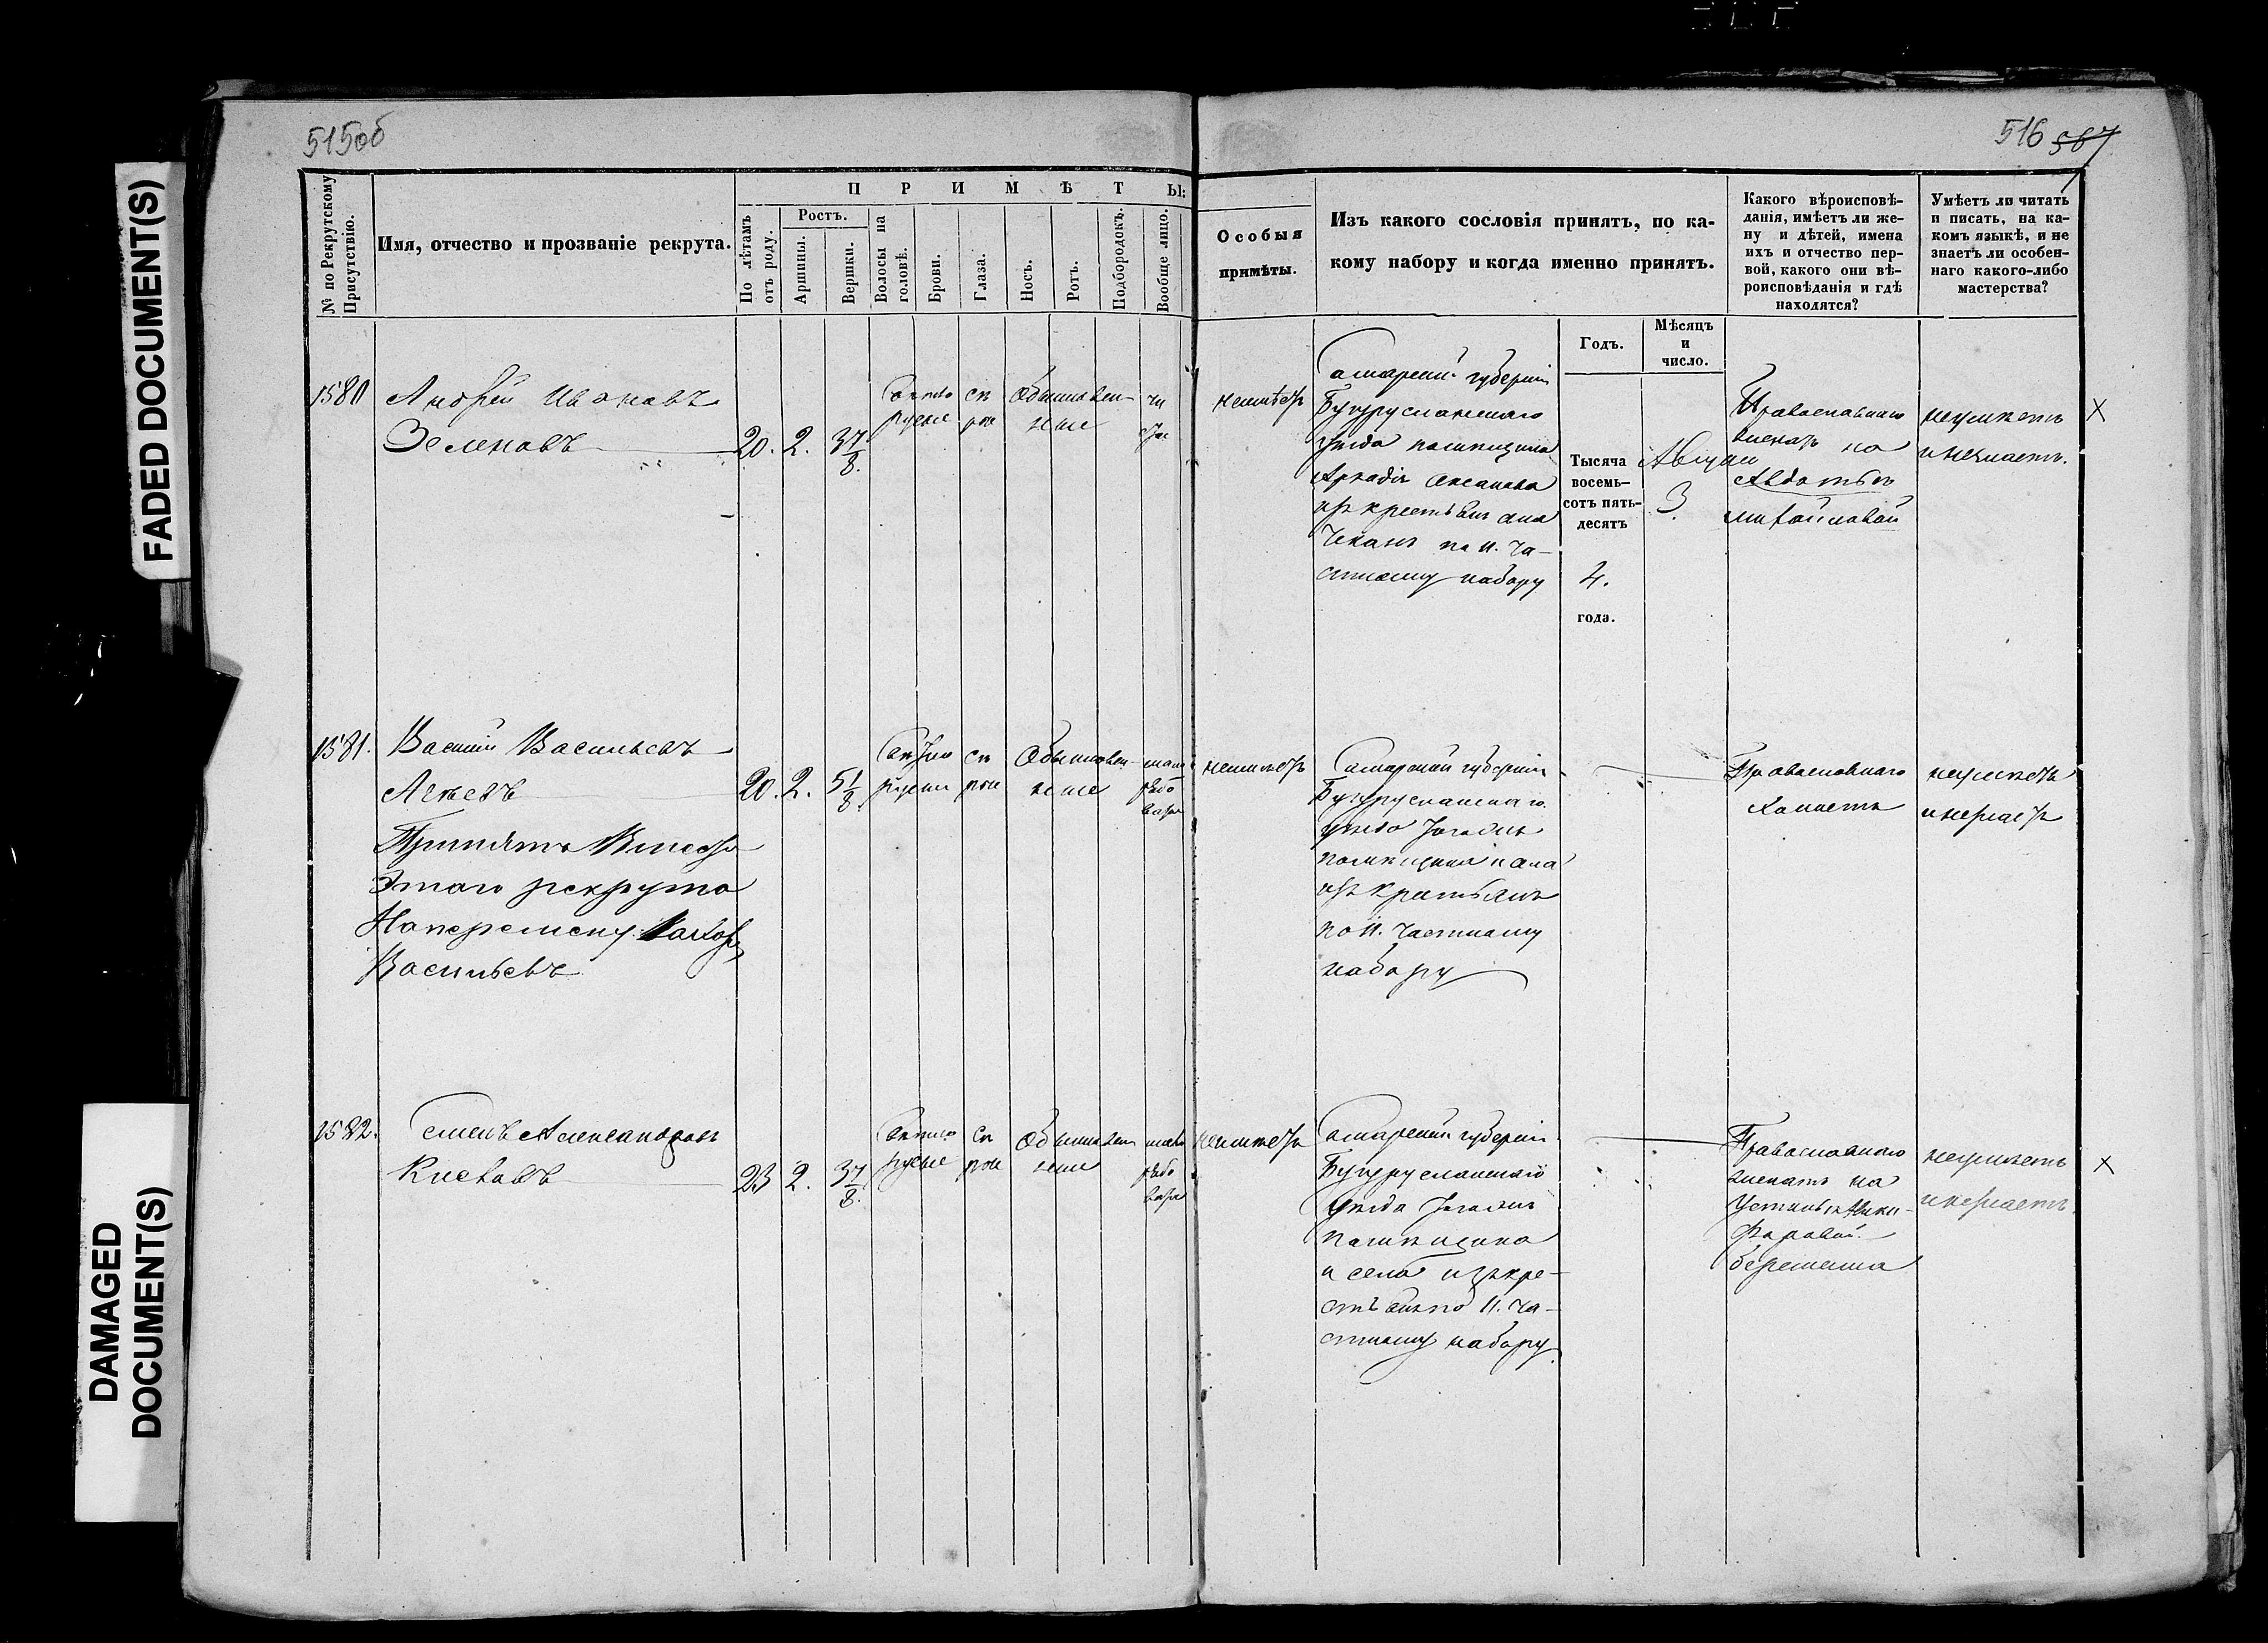 FADED DOCUMENT(S)
DAMAGED
DOCUMENT(S)
515об
516 567
ПРИМѢТЫ:
№ по Рекрутскому
Присутствію.
Имя, отчество и прозваніе рекрута.
По лѣтамъ
отъ роду.
Ростъ.
Аршины.
Вершки.
Волосы на
головѣ.
Брови.
Глаза.
Носъ.
Ротъ.
Подбородокъ.
Вообще лицо.
Особыя
примѣты.
Изъ какого сословія принятъ, по ка-
кому набору и когда именно принятъ.
Годъ.
Мѣсяцъ
и
число.
Какого вѣроисповѣ-
данія, имѣетъ ли же-
ну и дѣтей, имена
ихъ и отчество пер-
вой, какого они вѣ-
роисповѣданія и гдѣ
находятся?
Умѣетъ ли читать
и писать, на ка-
комъ языкѣ, и не
знаетъ ли особен-
наго какого-либо
мастерства?
1580
Андрей Ивановъ
Зеленовъ
20. 2. 3 7/8.
Свѣтло
русые
сѣ
рые
Обыкновен-
ные
чи
стое
неимѣетъ
Самарской губерніи
Бугурусланскаго
уѣзда помѣщика
Аркадія Аксакова
изъ крестьянъ села
по 11. ча-
стному набору
Тысяча
восемь-
сотъ пять-
десятъ
4.
года.
3.
Православнаго
женатъ на
Авдотьѣ
Михайловой
неумѣетъ
и незнаетъ.
X
1581.
Василій Васильевъ
20. 2. 5 1/8.
Свѣтло
русые
сѣ
рые
Обыкновен-
ные
рябо
ватое
неимѣетъ
Самарской губерніи
Бугурусланскаго
уѣзда
помѣщика села
изъ крестьянъ
по 11. частному
набору
Православнаго
Холостъ
неумѣетъ
и незнаетъ
Принятъ Вместо
Этаго рекрута
На перемену
Васильевъ
1582.
Семенъ Александровъ
23 2. 3 7/8.
Свѣтло
русые
сѣ
рые
Обыкновен
ные
рябо
ватое
неимѣетъ
Самарской губерніи
Бугурусланскаго
уѣзда
помѣщика
и села изъ кре-
стьянъ по 11. ча-
стному набору.
Православнаго
женатъ на
Устиньѣ Ники-
форовой
беременна
неумѣетъ
и незнаетъ.
X